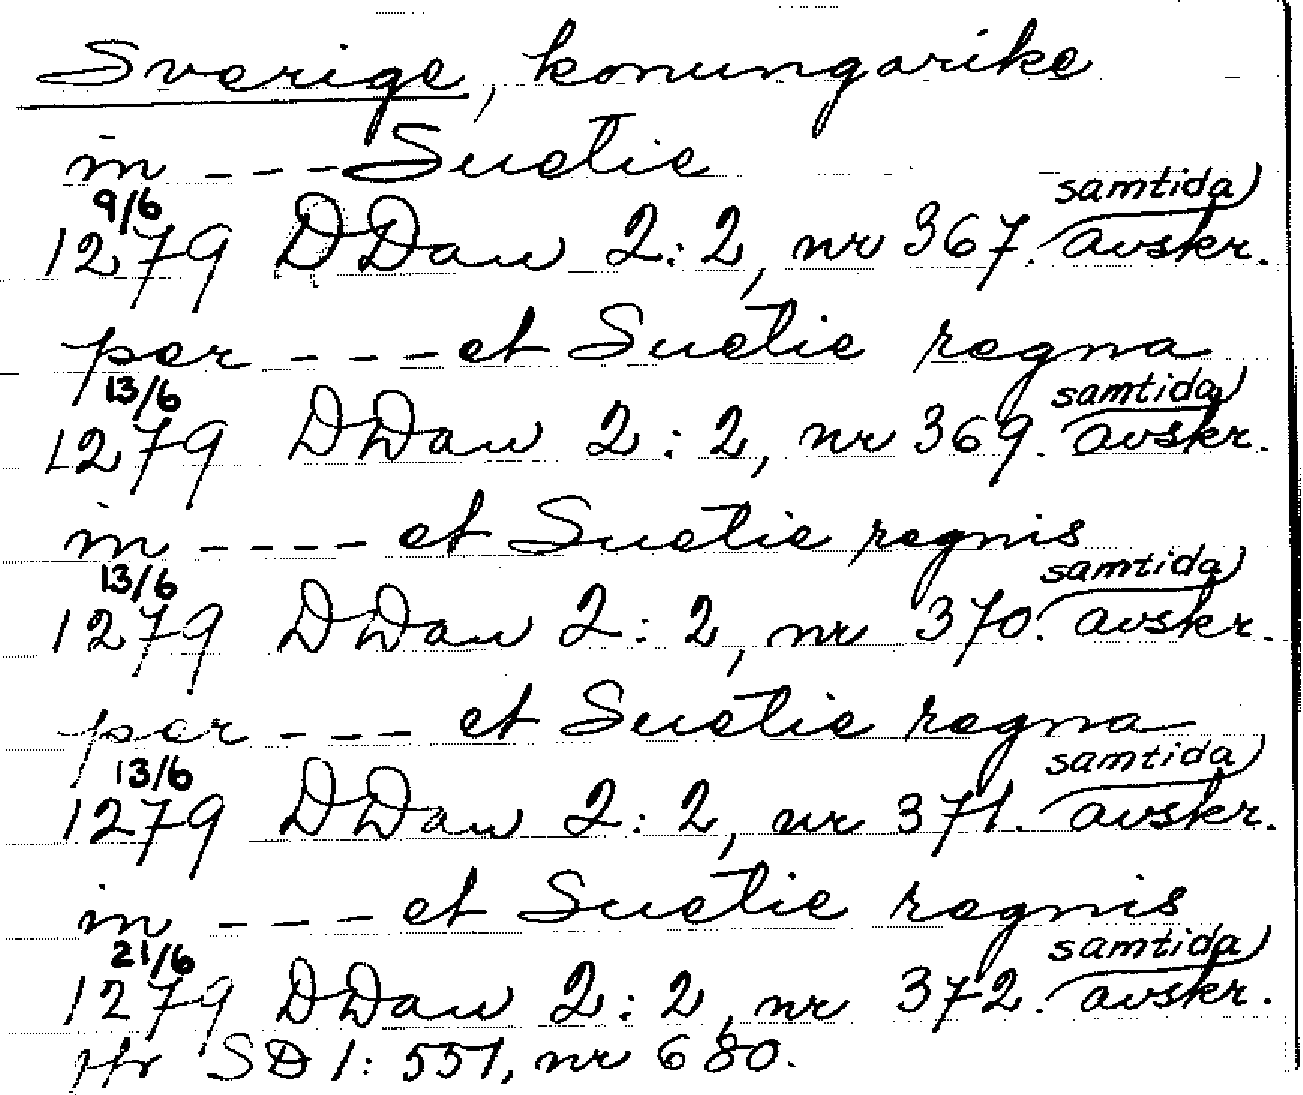 Sverige, konungarike
in - - - Suetie
9/6 samtida
1279 DDan 2:2, nr 367. avskr.
per - - - et Suetie regna
13/6 samtida
1279 DDan 2:2, nr 369. avskr.
in - - - - et Suetie regnis
13/6 samtida
1279 DDan 2:2, nr 370. avskr.
per - - - et Suetie regna
13/6 samtida
1279 DDan 2:2, nr 371. avskr.
in - - - et Suetie regnis
21/6 samtida
1279 DDan 2:2, nr 372. avskr.
Jfr SD 1: 551, nr 680.